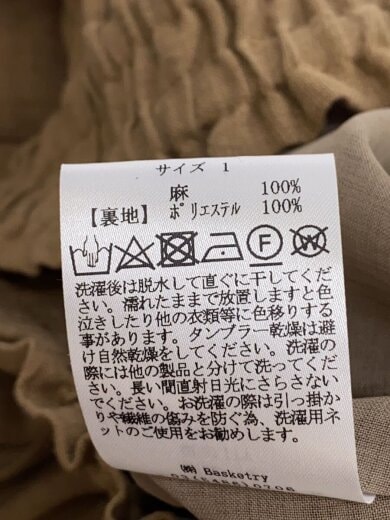 サイズ 1
麻 100%
【裏地】 ポリエステル 100%
F W
洗濯後は脱水して直ぐに干してくだ
さい。濡れたままで放置しますと色
泣きしたり他の衣類等に色移りする
事があります。タンブラー乾燥は避
け自然乾燥をしてください。洗濯の
際には他の製品と分けて洗ってくだ
さい。長い間直射日光にさらさない
でください。お洗濯の際は引っ掛か
りや繊維の傷みを防ぐ為、洗濯用ネ
ットのご使用をお勧めします。
㈱ Basketry